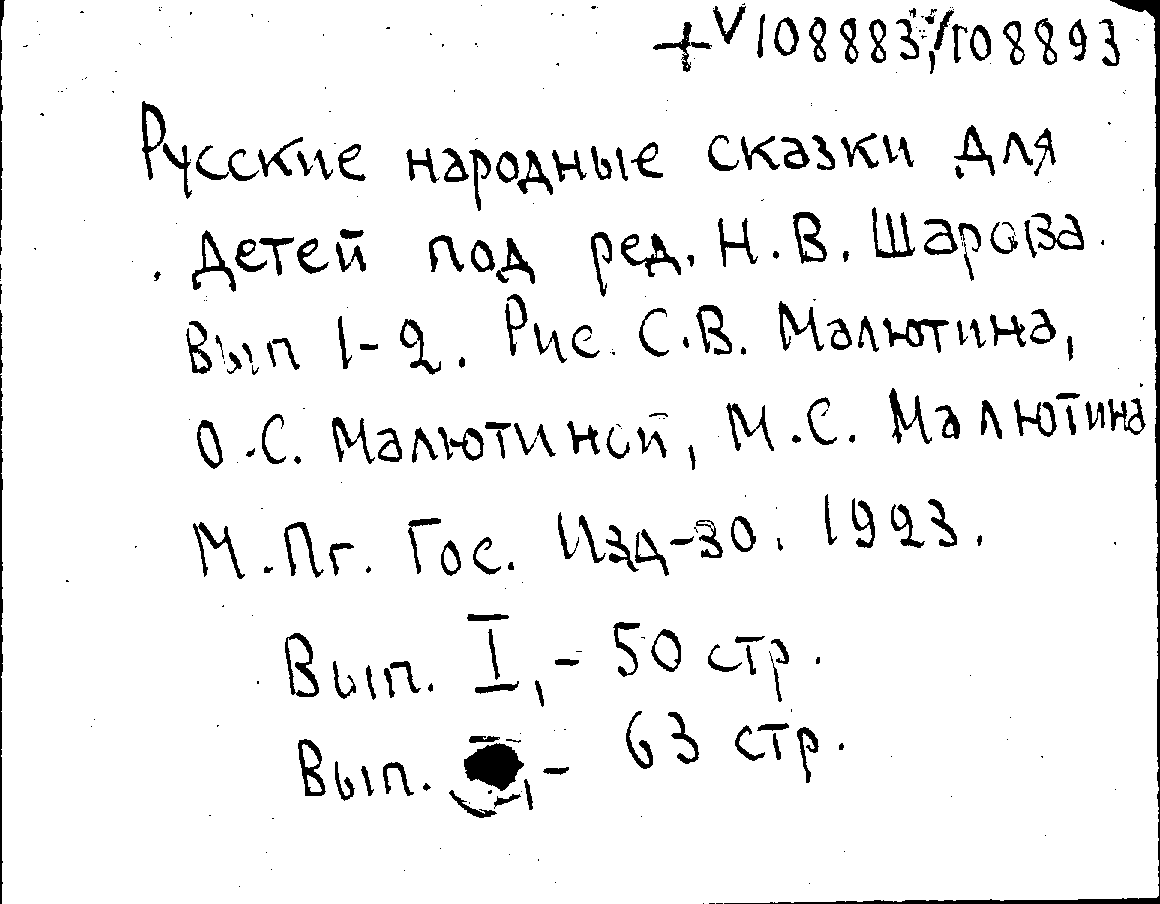 +V108883,/108893
Русские народные сказки для
детей под ред. Н.В. Шарова.
Вып 1-2. Рис. С.В. Малютина,
О.С. Малютиной, М.С. Малютина
М.Пг. Гос. Изд-во. 1923.
Вып. I, - 50 стр.
Вып. - 63 стр.